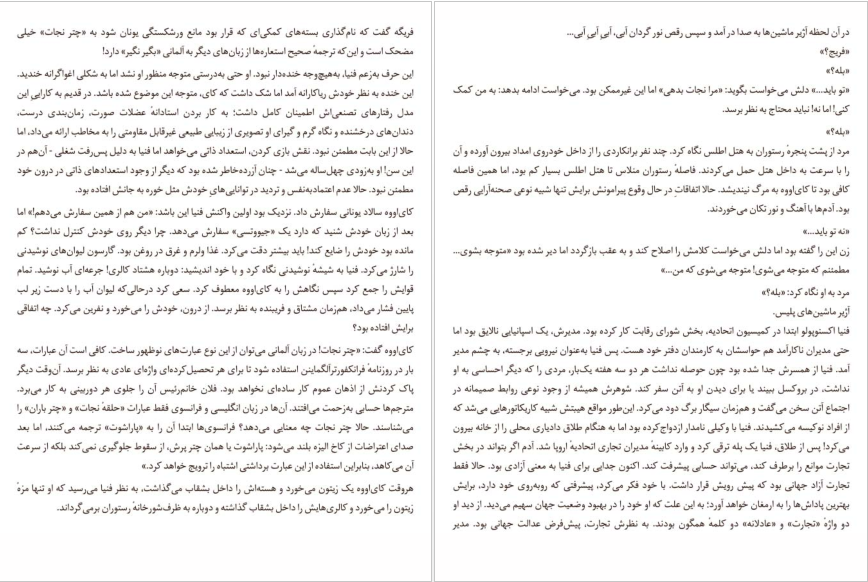 در آن لحظه آژیر ماشین‌ها به صدا در آمد و سپس رقص نور گردان آبی، آبی آبی آبی...
«فریج؟»
«بله؟»
«تو باید...» دلش می‌خواست بگوید: «مرا نجات بدهی» اما این غیرممکن بود. می‌خواست ادامه بدهد: به من کمک
کنی! اما نه! نباید محتاج به نظر برسد.
«بله؟»
مرد از پشت پنجرهٔ رستوران به هتل اطلس نگاه کرد. چند نفر برانکاردی را از داخل خودروی امداد بیرون آورده و آن
را با سرعت به داخل هتل حمل می‌کردند. فاصلهٔ رستوران منلاس تا هتل اطلس بسیار کم بود، اما همین فاصله
کافی بود تا کای‌اووه به مرگ نیندیشد. حالا اتفاقاتِ در حال وقوع پیرامونش برایش تنها شبیه نوعی صحنه‌آرایی رقص
بود. آدم‌ها با آهنگ و نور تکان می‌خوردند.
«نه تو باید...»
زن این را گفته بود اما دلش می‌خواست کلامش را اصلاح کند و به عقب بازگردد اما دیر شده بود «متوجه بشوی...
مطمئنم که متوجه می‌شوی! متوجه می‌شوی که من...»
مرد به او نگاه کرد: «بله؟»
آژیر ماشین‌های پلیس.
فنیا اکسنوپولو ابتدا در کمیسیون اتحادیه، بخش شورای رقابت کار کرده بود. مدیرش، یک اسپانیایی نالایق بود اما
حتی مدیران ناکارآمد هم حواسشان به کارمندان دفتر خود هست. پس فنیا به‌عنوان نیرویی برجسته، به چشم مدیر
آمد. فنیا از همسرش جدا شده بود چون حوصله نداشت هر دو سه هفته یک‌بار، مردی را که دیگر احساسی به او
نداشت، در بروکسل ببیند یا برای دیدن او به آتن سفر کند. شوهرش همیشه از وجود نوعی روابط صمیمانه در
اجتماع آتن سخن می‌گفت و هم‌زمان سیگار برگ دود می‌کرد. این‌طور مواقع هیبتش شبیه کاریکاتورهایی می‌شد که
از افراد نوکیسه می‌کشیدند. فنیا با وکیلی نامدار ازدواج کرده بود اما به هنگام طلاق دادیاری محلی را از خانه بیرون
می‌کرد! پس از طلاق، فنیا یک پله ترقی کرد و وارد کابینهٔ مدیران تجاری اتحادیهٔ اروپا شد. آدم اگر بتواند در بخش
تجارت موانع را برطرف کند، می‌تواند حسابی پیشرفت کند. اکنون جدایی برای فنیا به معنی آزادی بود. حالا فقط
تجارت آزاد جهانی بود که پیش رویش قرار داشت. با خود فکر می‌کرد، پیشرفتی که روبه‌روی خود دارد، برایش
بهترین پاداش‌ها را به ارمغان خواهد آورد؛ به این علت که او خود را در بهبود وضعیت جهان سهیم می‌دید. از دید او
دو واژهٔ «تجارت» و «عادلانه» دو کلمهٔ همگون بودند. به نظرش تجارت، پیش‌فرض عدالت جهانی بود. مدیر
فریگه گفت که نام‌گذاری بسته‌های کمکی‌ای که قرار بود مانع ورشکستگی یونان شود به «چتر نجات» خیلی
مضحک است و این‌که ترجمهٔ صحیح استعاره‌ها از زبان‌های دیگر به آلمانی «بگیر نگیر» دارد!
این حرف به‌زعم فنیا، به‌هیچ‌وجه خنده‌دار نبود. او حتی به‌درستی متوجه منظور او نشد اما به شکلی اغواگرانه خندید.
این خنده به نظر خودش ریاکارانه آمد اما شک داشت که کای، متوجه این موضوع شده باشد. در قدیم به کارایی این
مدل رفتارهای تصنعی‌اش اطمینان کامل داشت؛ به کار بردن استادانهٔ عضلات صورت، زمان‌بندی درست،
دندان‌های درخشنده و نگاه گرم و گیرای او تصویری از زیبایی طبیعی غیرقابل مقاومتی را به مخاطب ارائه می‌داد، اما
حالا از این بابت مطمئن نبود. نقش بازی کردن، استعداد ذاتی می‌خواهد اما فنیا به دلیل پس‌رفت شغلی - آن‌هم در
این سن! او به‌زودی چهل‌ساله می‌شد - چنان آزرده‌خاطر شده بود که دیگر از وجود استعدادهای ذاتی در درون خود
مطمئن نبود. حالا عدم اعتمادبه‌نفس و تردید در توانایی‌های خودش مثل خوره به جانش افتاده بود.
کای‌اووه سالاد یونانی سفارش داد. نزدیک بود اولین واکنش فنیا این باشد: «من هم از همین سفارش می‌دهم!» اما
بعد از زبان خودش شنید که دارد یک «جیووتسی» سفارش می‌دهد. چرا دیگر روی خودش کنترل نداشت؟ کم
مانده بود خودش را ضایع کند! باید بیشتر دقت می‌کرد. غذا ولرم و غرق در روغن بود. گارسون لیوان‌های نوشیدنی
را شارژ می‌کرد. فنیا به شیشهٔ نوشیدنی نگاه کرد و با خود اندیشید: دوباره هشتاد کالری! جرعه‌ای آب نوشید. تمام
قوایش را جمع کرد سپس نگاهش را به کای‌اووه معطوف کرد. سعی کرد درحالی‌که لیوان آب را با دست زیر لب
پایین فشار می‌داد، هم‌زمان مشتاق و فریبنده به نظر برسد. از درون، خودش را می‌خورد و نفرین می‌کرد. چه اتفاقی
برایش افتاده بود؟
کای‌اووه گفت: «چتر نجات! در زبان آلمانی می‌توان از این نوع عبارت‌های نوظهور ساخت. کافی است آن عبارات، سه
بار در روزنامهٔ فرانکفورترآلگماینن استفاده شود تا برای هر تحصیل‌کرده‌ای واژه‌ای عادی به نظر برسد. آن‌وقت دیگر
پاک کردنش از اذهان عموم کار ساده‌ای نخواهد بود. فلان خانم‌رئیس آن را جلوی هر دوربینی به کار می‌برد.
مترجم‌ها حسابی به‌زحمت می‌افتند. آن‌ها در زبان انگلیسی و فرانسوی فقط عبارات «حلقهٔ نجات» و «چتر باران» را
می‌شناسند. حالا چتر نجات چه معنایی می‌دهد؟ فرانسوی‌ها ابتدا آن را به «پاراشوت» ترجمه می‌کنند، اما بعد
صدای اعتراضات از کاخ الیزه بلند می‌شود: پاراشوت یا همان چتر پرش، از سقوط جلوگیری نمی‌کند بلکه از سرعت
آن می‌کاهد، بنابراین استفاده از این عبارت برداشتی اشتباه را ترویج خواهد کرد.»
هروقت کای‌اووه یک زیتون می‌خورد و هسته‌اش را داخل بشقاب می‌گذاشت، به نظر فنیا می‌رسید که او تنها مزهٔ
زیتون را می‌خورد و کالری‌هایش را داخل بشقاب گذاشته و دوباره به ظرف‌شورخانهٔ رستوران برمی‌گرداند.